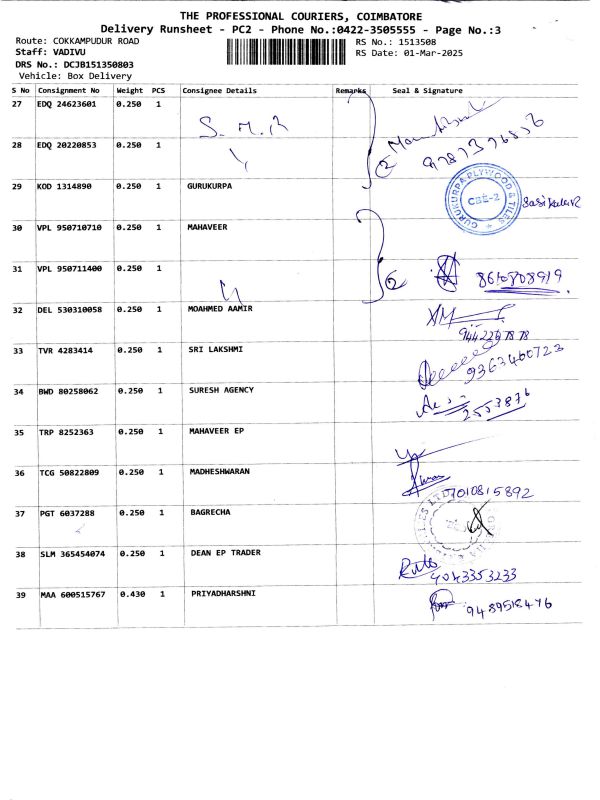 THE PROFESSIONAL COURIERS, COIMBATORE
Delivery Runsheet - PC2 - Phone No.:0422-3505555 - Page No.:3
Route: COKKAMPUDUR ROAD
RS No.: 1513508
Staff: VADIVU
RS Date: 01-Mar-2025
DRS No.: DCJB151350803
Vehicle: Box Delivery
S No Consignment No Weight PCS Consignee Details Remarks Seal & Signature
27 EDQ 24623601 0.250 1 S.M.R
28 EDQ 20220853 0.250 1 2 9787376836
29 KOD 1314890 0.250 1 GURUKURPA GURUKURPA PLYWOOD & TILES CBE-2
30 VPL 950710710 0.250 1 MAHAVEER
31 VPL 950711400 0.250 1 2 8610808919
32 DEL 530310058 0.250 1 MOAHMED AAMIR 9442297878
33 TVR 4283414 0.250 1 SRI LAKSHMI 9363460723
34 BWD 80258062 0.250 1 SURESH AGENCY 2553876
35 TRP 8252363 0.250 1 MAHAVEER EP
36 TCG 50822809 0.250 1 MADHESHWARAN 7010815892
37 PGT 6037288 0.250 1 BAGRECHA
38 SLM 365454074 0.250 1 DEAN EP TRADER 9043353233
39 MAA 600515767 0.430 1 PRIYADHARSHNI 9489518476